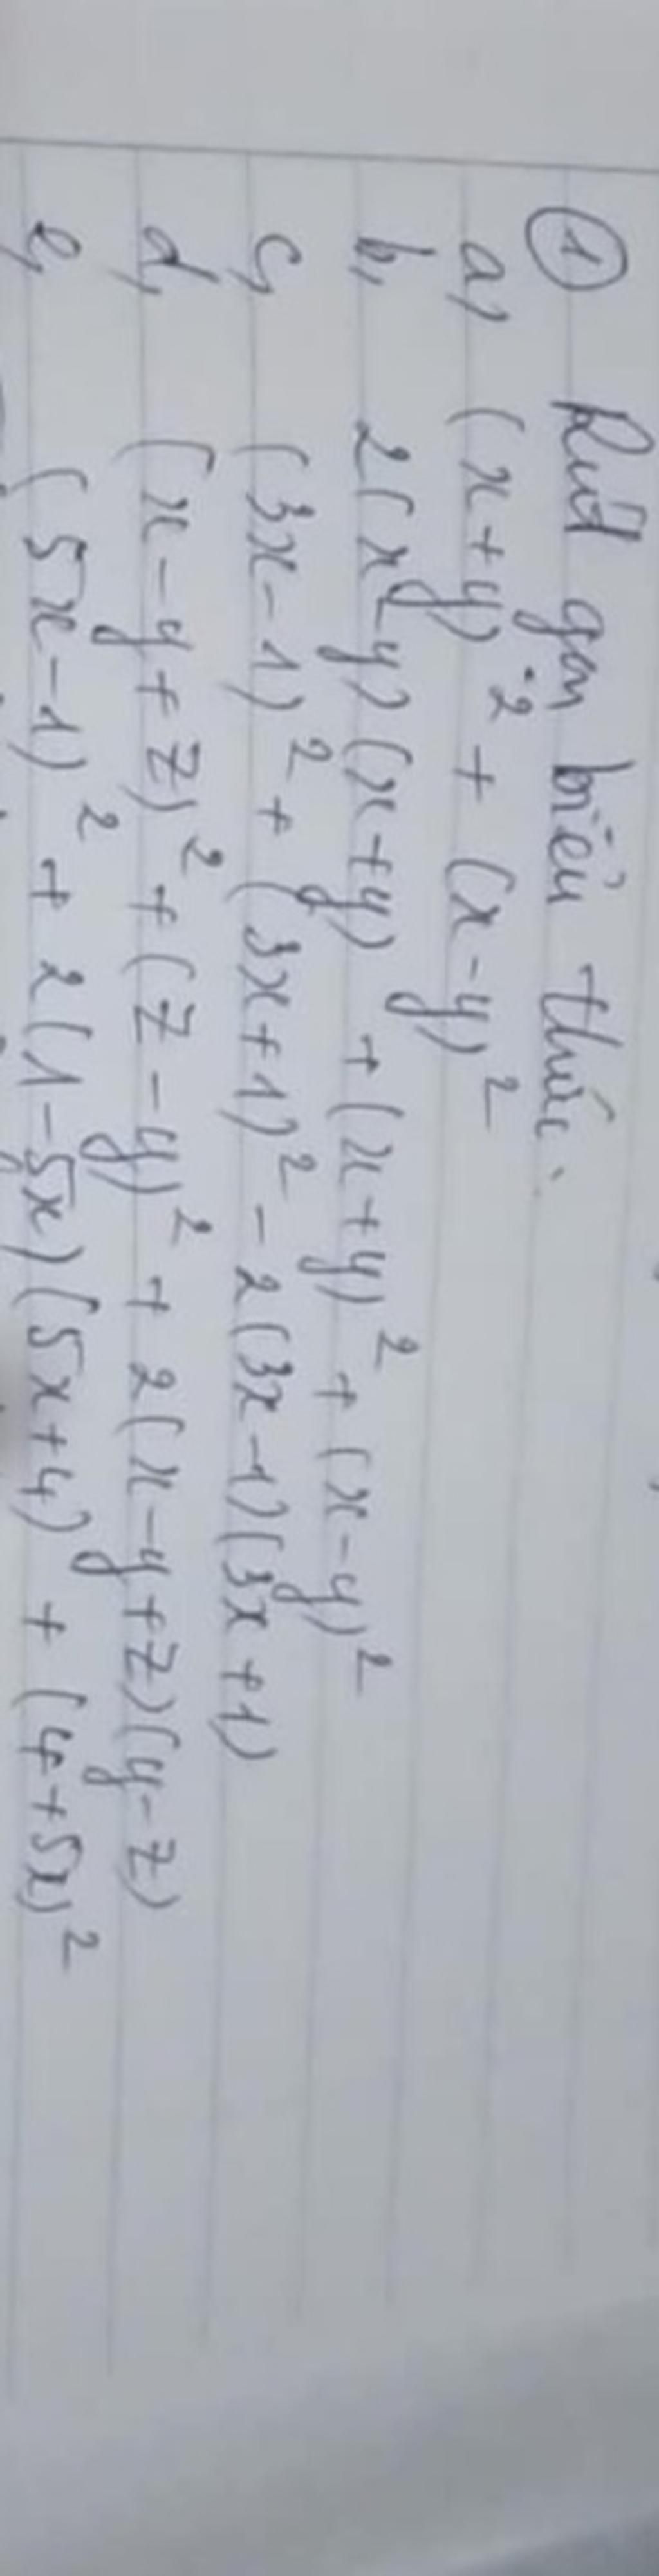 ① Rút gọn biểu thức.
a, (x+y)² + (x-y)²
b, 2(x-y)(x+y) + (x+y)² + (x-y)²
c, (3x-1)² + (3x+1)² - 2(3x-1)(3x+1)
d, (x-y+z)² + (z-y)² + 2(x-y+z)(y-z)
e, (5x-1)² + 2(1-5x)(5x+4) + (4+5x)²